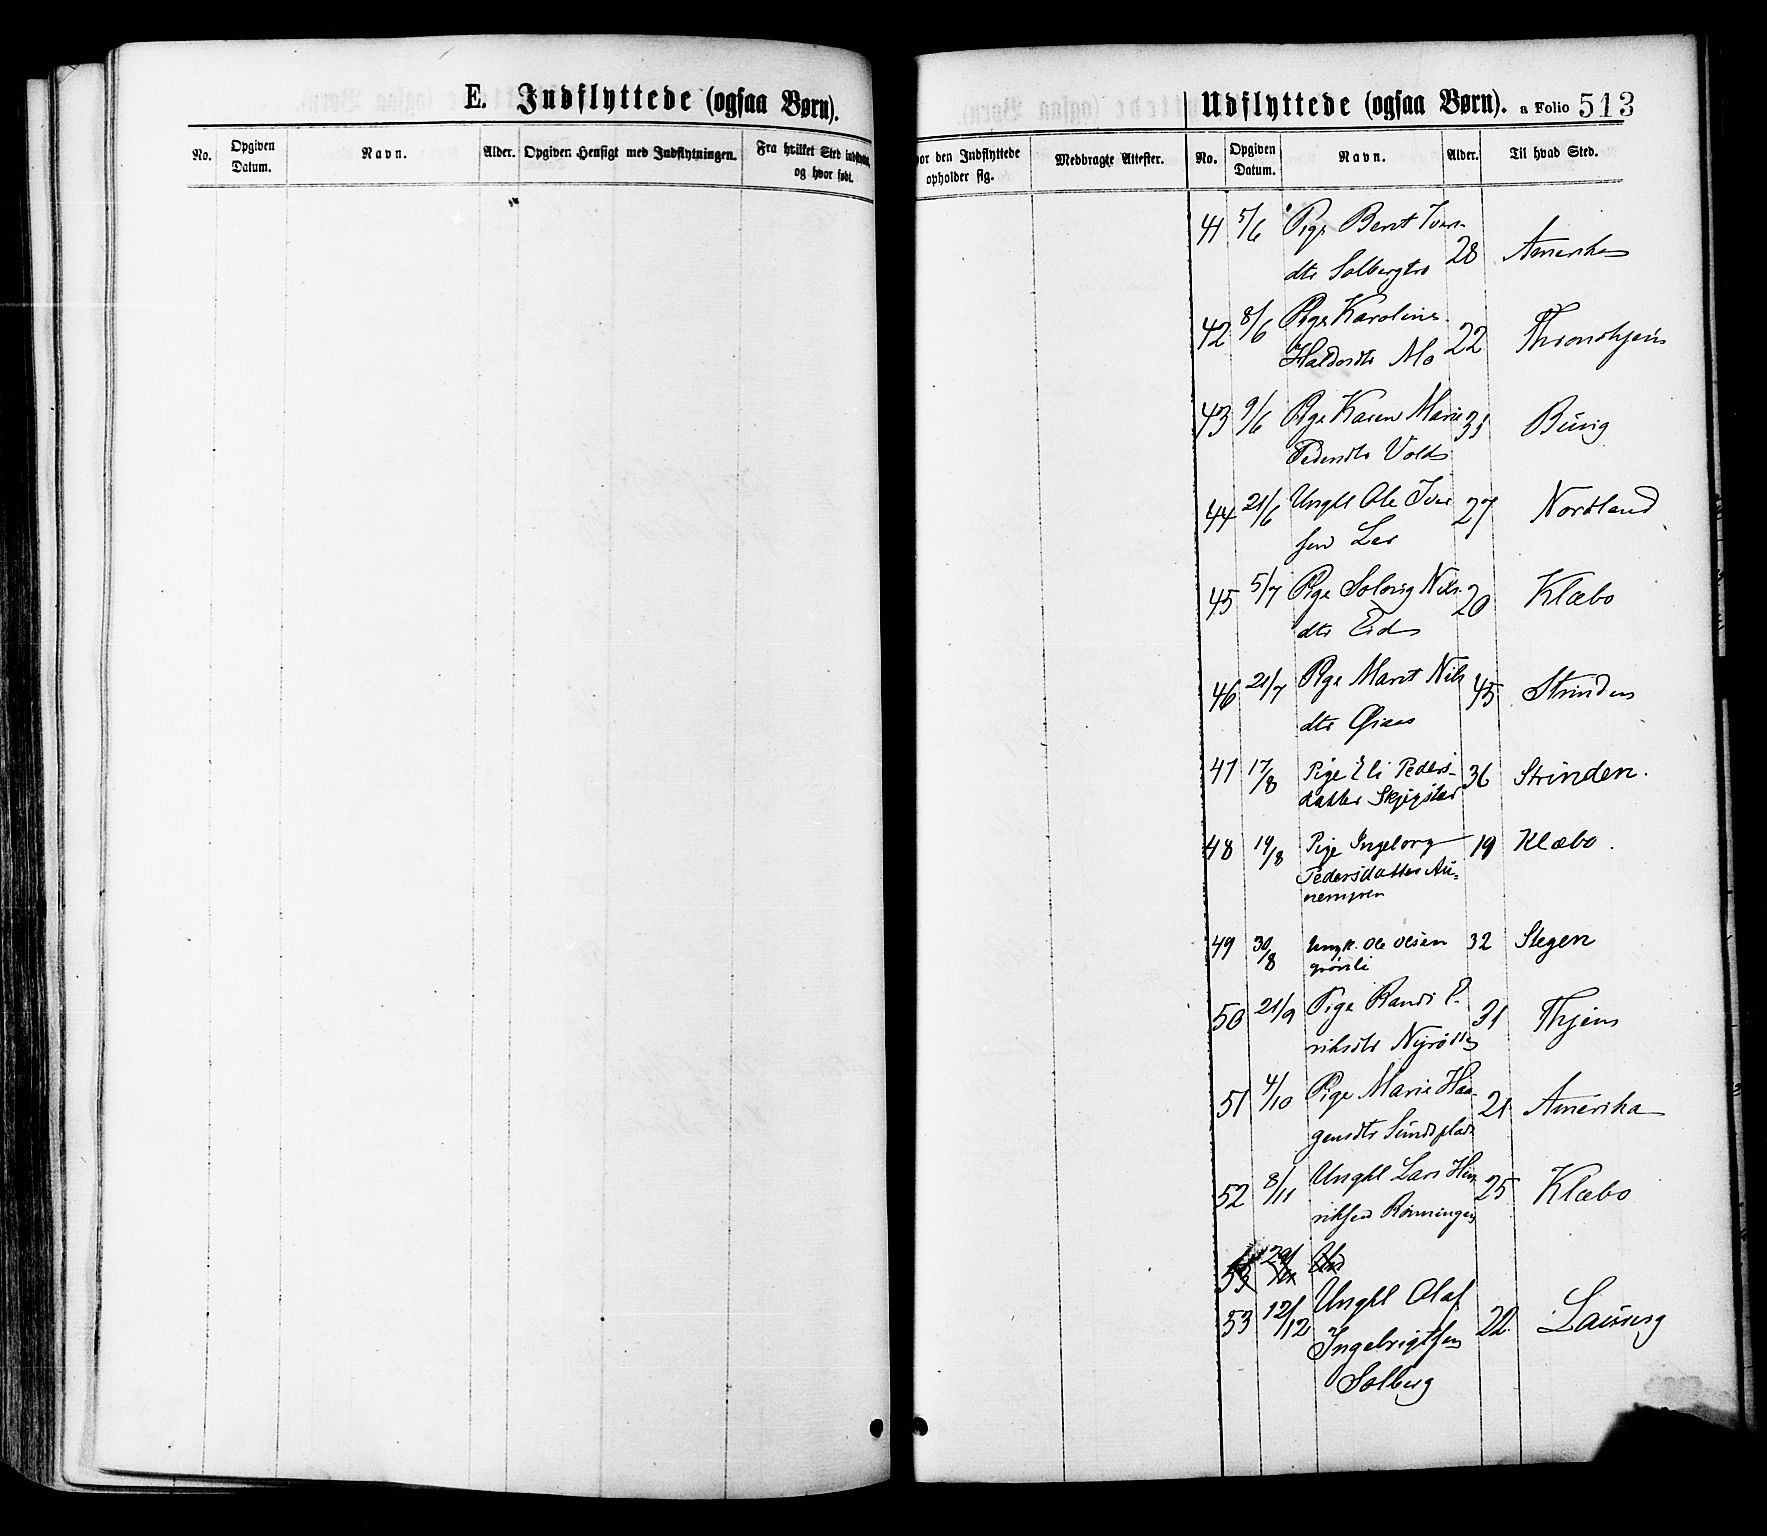 E. Indflyttede (ogsaa Børn).
No. Opgiven Datum. Navn. Alder. Opgiven Hensigt med Indflytningen. Fra hvilket Sted indflyttet, og hvor født.
Udflyttede (ogsaa Børn). a Folio 513
hvor den Indflyttede opholder sig. Medbragte Attester. No. Opgiven Datum. Navn. Alder. Til hvad Sted.
41 5/6 Pige Berit Ivers-
dtr Solbergtrø 28 Amerika
42 8/6 Pige Karoline
Haldordtr Mo 22 Throndhjem
43 9/6 Pige Karen Marie 31
Pedersdtr Vold
44 21/6 Ungkl Ole Iver 27 Nordland
sen Ler
45 5/7 Pige Solvig Nils 20 Klæbo
dtr Eid
46 21/7 Pige Marit Nils 45 Strinden
dtr
47 17/8 Pige Eli Peders- 36 Strinden.
datter
48 19/8 Pige Ingeborg 19 Klæbo.
Pedersdatter Au=
nemyren
49 30/8 Ungk. Ole Olsen 32 Stegen
Grønli
50 21/9 Pige Randi E- 31 Thjem
riksdtr
51 4/10 Pige Marie Haa- 21 Amerika
gensdtr
52 8/11 Ungkl Lars Hen 25 Klæbo
riksen Rønningen
53
53 12/12 Ungkl Olaf 22
Ingebrigtsen
Solberg